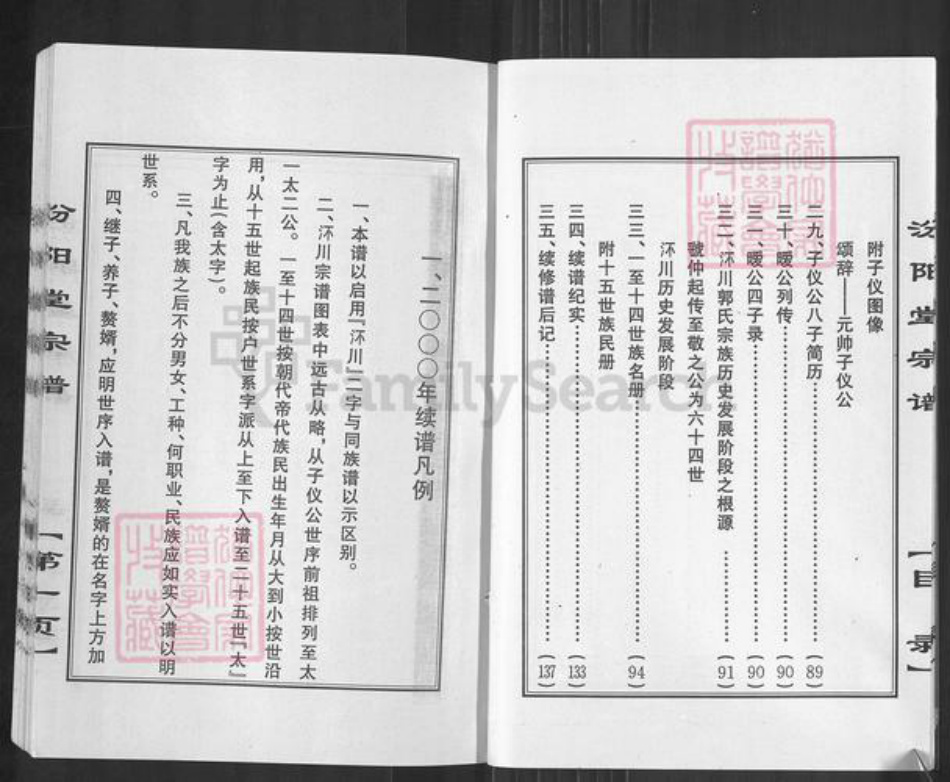 汾阳堂宗谱
【目录】
附子仪图像
颂辞——元帅子仪公
二九、子仪公八子简历（89）
三十、暧公列传（90）
三一、暧公四子录（90）
三二、沶川郭氏宗族历史发展阶段之根源（91）
虢仲起传至敬之公为六十四世
沶川历史发展阶段
三三、一至十四世族名册（94）
附十五世族民册
三四、续谱纪实（133）
三五、续修谱后记（137）
一、二〇〇〇年续谱凡例
一、本谱以启用『沶川』二字与同族谱以示区别。
二、沶川宗谱图表中远古从略，从子仪公世序前祖排列至太
一太二公。一至十四世按朝代帝代族民出生年月从大到小按世沿
用，从十五世起族民按户世系字派从上至下入谱至二十五世『太』
字为止（含太字）。
三、凡我族之后不分男女、工种、何职业、民族应如实入谱以明
世系。
四、继子、养子、赘婿，应明世序入谱，是赘婿的在名字上方加
汾阳堂宗谱
【第一页】
FamilySearch